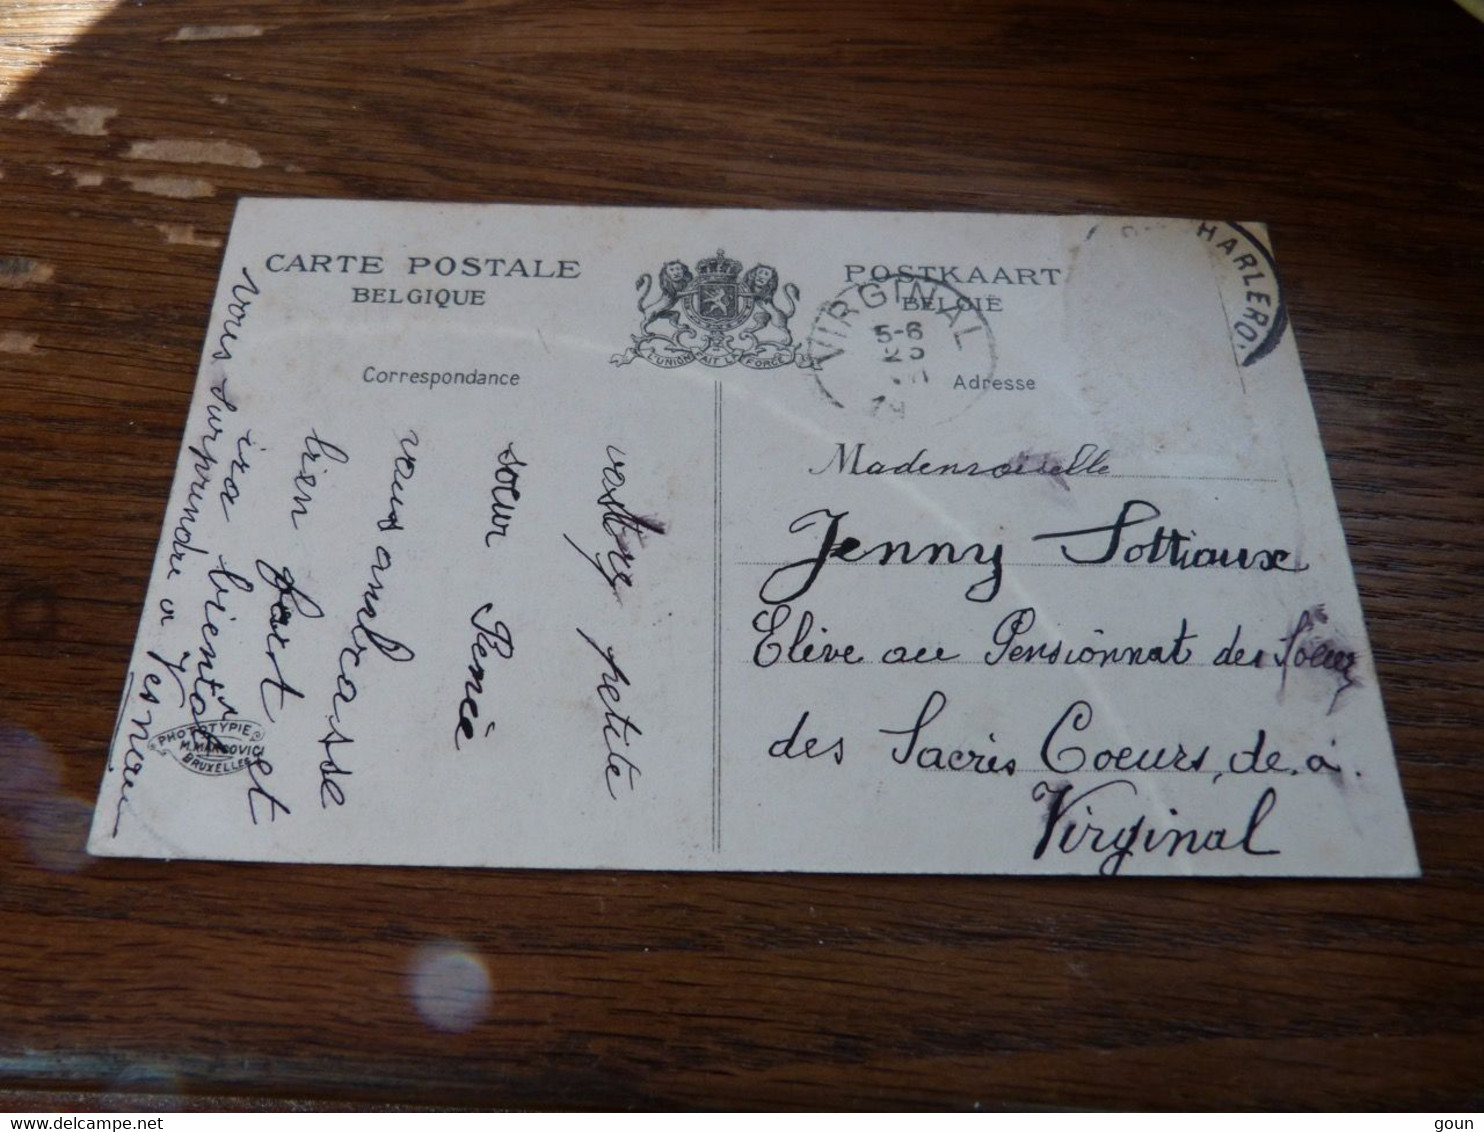 CARTE POSTALE
BELGIQUE
Correspondance
L'UNION FAIT LA FORCE
POSTKAART
BELGIE
Adresse
VIRGINAL
5-6
25
VII
19
HARLERO
votre petite
soeur Renée
vous ambrasse
bien fort et
ira bientôt
vous surprundre a
PHOTOTYPIE
M. MARCOVICI
BRUXELLES
Mademoiselle
Jenny Sottiaux
Elève au Pensionnat des Soeur
des Sacrés Coeurs, de à.
Virginal
goun